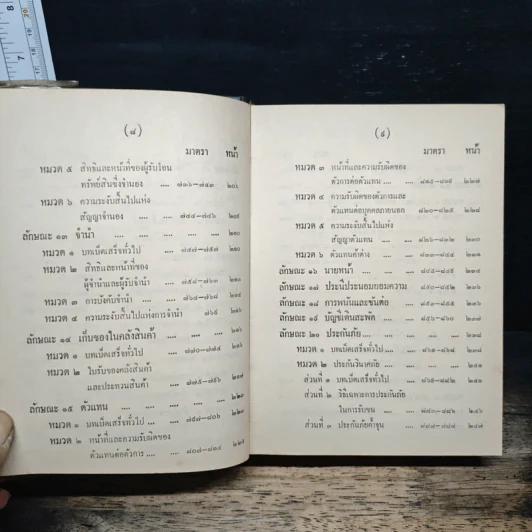 (๘)
มาตรา หน้า
หมวด ๕ สิทธิและหน้าที่ของผู้รับโอน
ทรัพย์สินซึ่งจำนอง .... ๗๓๖–๗๔๓
หมวด ๖ ความระงับสิ้นไปแห่ง
สัญญาจำนอง .... .... ๗๔๔–๗๔๖
ลักษณะ ๑๓ จำนำ .... .... .... .... ....
หมวด ๑ บทเบ็ดเสร็จทั่วไป .... ๗๔๗–๗๕๗
หมวด ๒ สิทธิและหน้าที่ของ
ผู้จำนำและผู้รับจำนำ .... ๗๕๘–๗๖๓
หมวด ๓ การบังคับจำนำ .... ๗๖๔–๗๖๘
หมวด ๔ ความระงับสิ้นไปแห่งการจำนำ ๗๖๙
ลักษณะ ๑๔ เก็บของในคลังสินค้า ....
หมวด ๑ บทเบ็ดเสร็จทั่วไป .... ๗๗๐–๗๗๔
หมวด ๒ ใบรับของคลังสินค้า
และประทวนสินค้า .... ๗๗๕–๗๙๖
ลักษณะ ๑๕ ตัวแทน .... .... .... ....
หมวด ๑ บทเบ็ดเสร็จทั่วไป .... ๗๙๗–๘๐๖
หมวด ๒ หน้าที่และความรับผิดของ
ตัวแทนต่อตัวการ .... ๘๐๗–๘๑๔
(๙)
มาตรา หน้า
หมวด ๓ หน้าที่และความรับผิดของ
ตัวการต่อตัวแทน .... ๘๑๕–๘๑๙ ๒๒๗
หมวด ๔ ความรับผิดของตัวการและ
ตัวแทนต่อบุคคลภายนอก ๘๒๐–๘๒๕ ๒๒๘
หมวด ๕ ความระงับสิ้นไปแห่ง
สัญญาตัวแทน .... ๘๒๖–๘๓๒
หมวด ๖ ตัวแทนค้าต่าง .... ๘๓๓–๘๔๔
ลักษณะ ๑๖ นายหน้า .... .... ๘๔๕–๘๔๙
ลักษณะ ๑๗ ประนีประนอมยอมความ ๘๕๐–๘๕๒
ลักษณะ ๑๘ การพนันและขันต่อ ๘๕๓–๘๕๕
ลักษณะ ๑๙ บัญชีเดินสะพัด .... ๘๕๖–๘๖๐
ลักษณะ ๒๐ ประกันภัย .... .... ....
หมวด ๑ บทเบ็ดเสร็จทั่วไป .... ๘๖๑–๘๖๘
หมวด ๒ ประกันวินาศภัย .... ....
ส่วนที่ ๑ บทเบ็ดเสร็จทั่วไป .... ๘๖๙–๘๘๒
ส่วนที่ ๒ วิธีเฉพาะการประกันภัย
ในการรับขน .... ๘๘๓–๘๘๖ ๒๔๖
ส่วนที่ ๓ ประกันภัยค้ำจุน .... ๘๘๗–๘๘๘ ๒๔๗